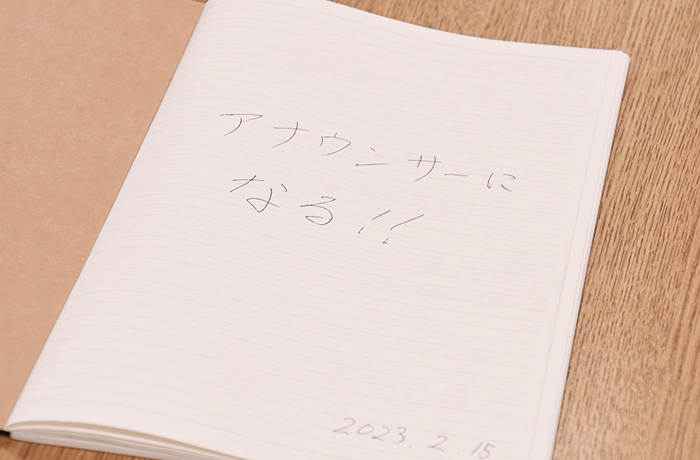 アナウンサーに
なる!!
2023.2.15